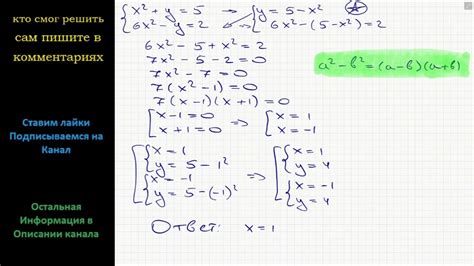 кто смог решить
сам пишите в
комментариях
Ставим лайки
Подписываемся на
Канал
Остальная
Информация в
Описании канала
{x² + y = 5 → {y = 5 - x²
{6x² - y = 2 {6x² - (5 - x²) = 2
6x² - 5 + x² = 2
7x² - 5 - 2 = 0
7x² - 7 = 0
7(x² - 1) = 0
7(x - 1)(x + 1) = 0
[x - 1 = 0 => [x = 1
[x + 1 = 0 [x = -1
[{x = 1 => [{x = 1
{y = 5 - 1² {y = 4
{x = -1 {x = -1
{y = 5 - (-1)² {y = 4
Ответ: x = 1
a² - b² = (a - b)(a + b)